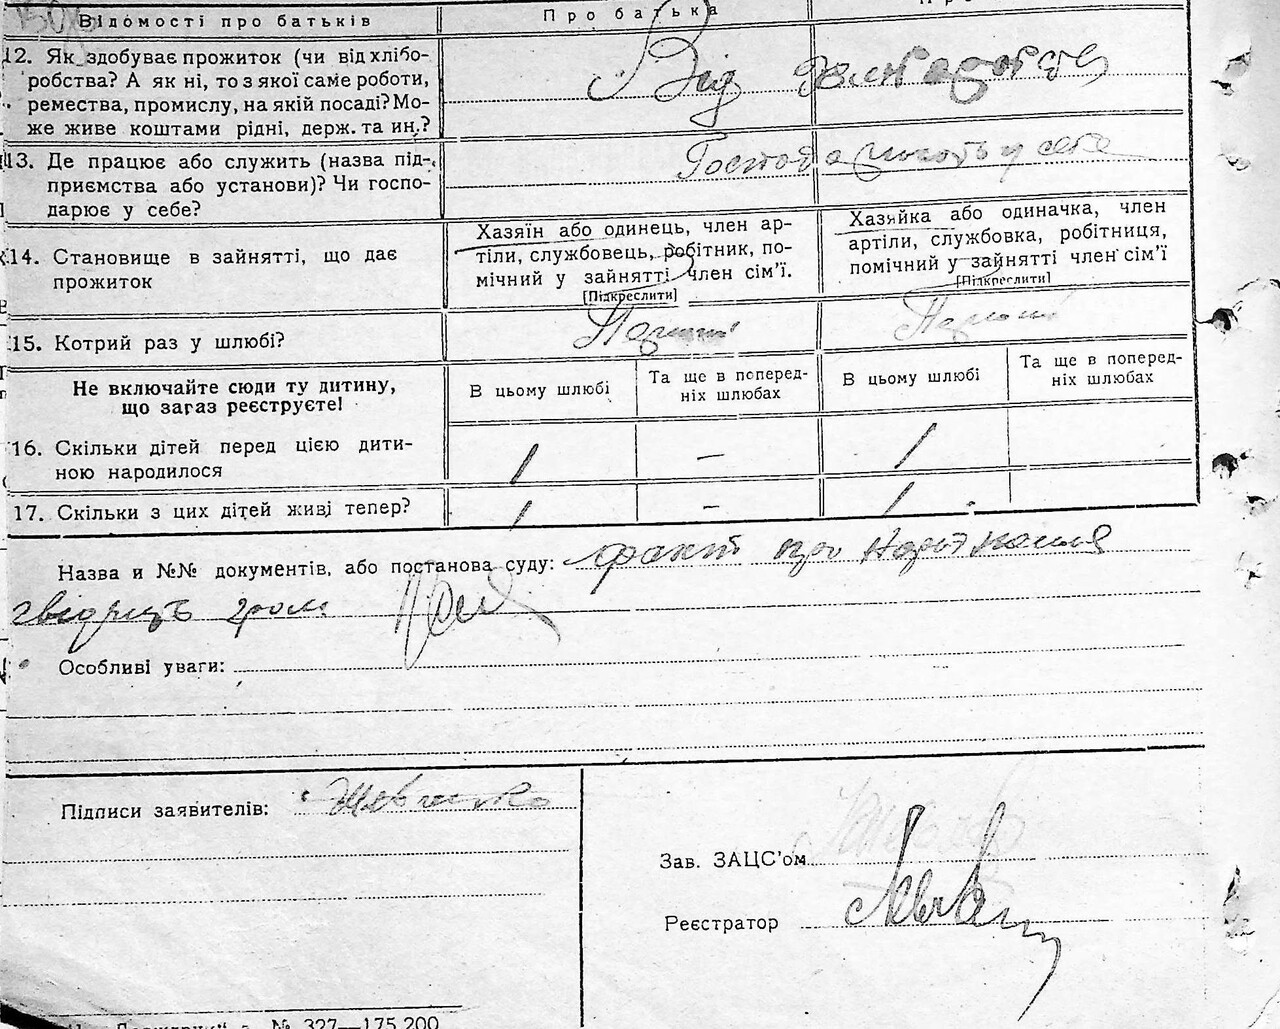 Відомості про батьків
Про батька
12. Як здобуває прожиток (чи від хлібо-
робства? А як ні, то з якої саме роботи,
ремества, промислу, на якій посаді? Мо-
же живе коштами рідні, держ. та ин.?
Від
13. Де працює або служить (назва під-
приємства або установи)? Чи госпо-
дарює у себе?
у себе
14. Становище в зайнятті, що дає
прожиток
Хазяїн або одинець, член ар-
тіли, службовець, робітник, по-
мічний у зайнятті член сім’ї.
[Підкреслити]
Хазяйка або одиначка, член
артіли, службовка, робітниця,
помічний у зайнятті член сім’ї
[Підкреслити]
15. Котрий раз у шлюбі?
Перший
Перший
Не включайте сюди ту дитину,
що загаз реєструєте!
В цьому шлюбі
Та ще в поперед-
ніх шлюбах
В цьому шлюбі
Та ще в поперед-
ніх шлюбах
16. Скільки дітей перед цією дити-
ною народилося
1
—
1
17. Скільки з цих дітей живі тепер?
1
—
1
Назва и №№ документів, або постанова суду: факт про
гром
Особливі уваги:
Підписи заявителів:
Зав. ЗАЦС’ом
Реєстратор
№ 327—175.200